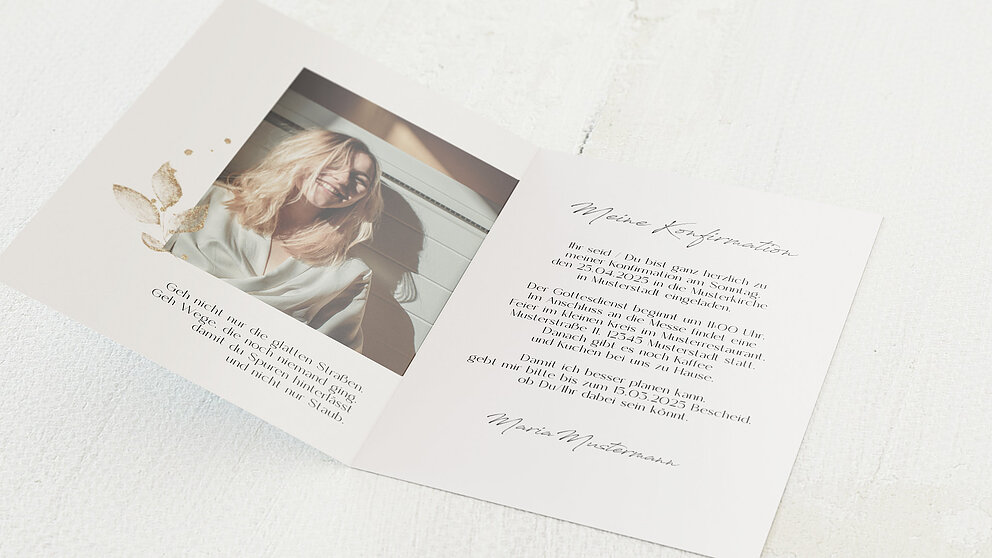 Geh nicht nur die glatten Straßen.
Geh Wege, die noch niemand ging,
damit du Spuren hinterlässt
und nicht nur Staub.
Meine Konfirmation
Ihr seid / Du bist ganz herzlich zu
meiner Konfirmation am Sonntag,
den 23.04.2023 in die Musterkirche
in Musterstadt eingeladen.
Der Gottesdienst beginnt um 11:00 Uhr.
Im Anschluss an die Messe findet eine
Feier im kleinen Kreis im Musterrestaurant,
Musterstraße 11, 12345 Musterstadt statt.
Danach gibt es noch Kaffee
und Kuchen bei uns zu Hause.
Damit ich besser planen kann,
gebt mir bitte bis zum 15.03.2023 Bescheid,
ob Du/Ihr dabei sein könnt.
Maria Mustermann